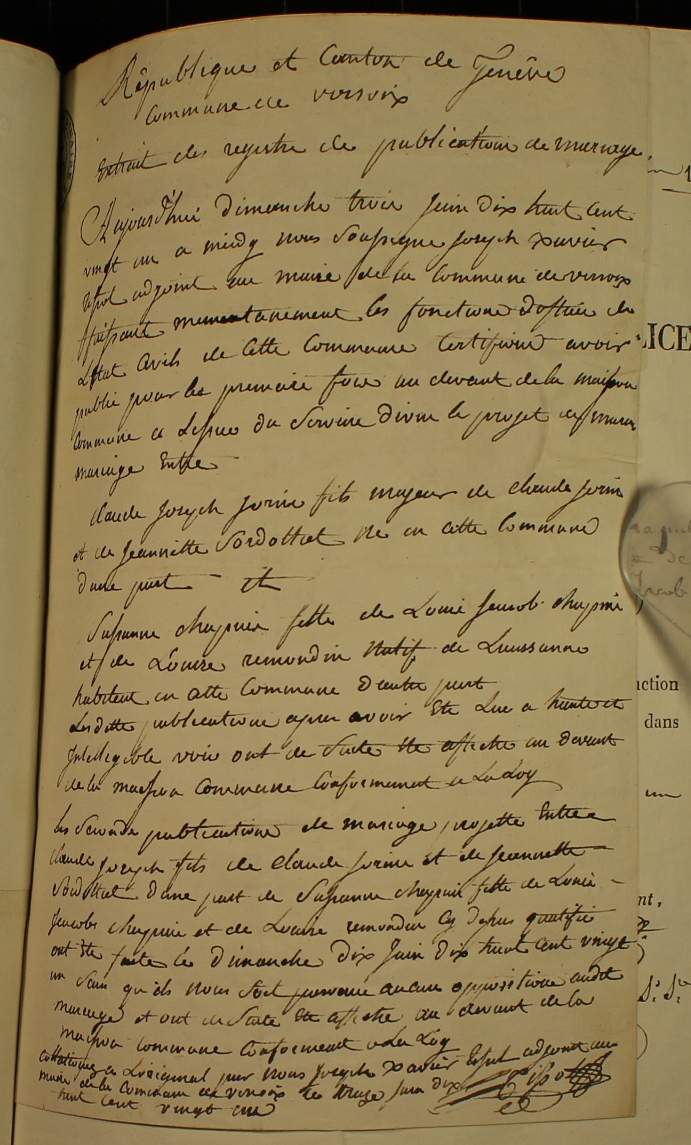 République et Canton de Genève
Commune de versoix
Extrait des registre de publication de mariage.
Aujourd'hui dimanche trois Juin dix huit cent
vingt un a midy nous Soussigne Joseph xavier
adjoint au maire de la Commune de versoix
faisant momentanement les fonctions d'officie de
L'Etat Civils de Cette Commune Certifions avoir
publié pour la premiere fois au devant de la maison
Commune a du Service divin le projet de
mariage Entre
Claude Joseph fils majeur de Claude
et de Jeannette né en cette Commune
d'une part et
Susanne fille de Louis Jacob
et de Louise remondin natif de Laussanne
habitant en cette Commune d'autre part
Lesditte publications apres avoir Ete Lue a haute et
Intelligible voix ont de Suite Ete affiché au devant
de la maison Commune Conformement a La Loy
les Seconde publications de mariage projetté Entre
Claude Joseph fils de Claude et de Jeannette
d'une part de Susanne fille de Louis
Jacob et de Louise remondin cy dessus qualifié
ont Eté faite le Dimanche Dix Juin Dix huit cent vingt
un Sans qu'ils nous Soit parvenu aucune opposition audit
mariage et ont de Suite Eté affiché au devant de la
maison commune Conformement a La Loy
a L'original par nous Joseph xavier adjoint au
maire de la Commune de versoix le treize Juin dix
huit cent vingt un
LICE
action
dans
un